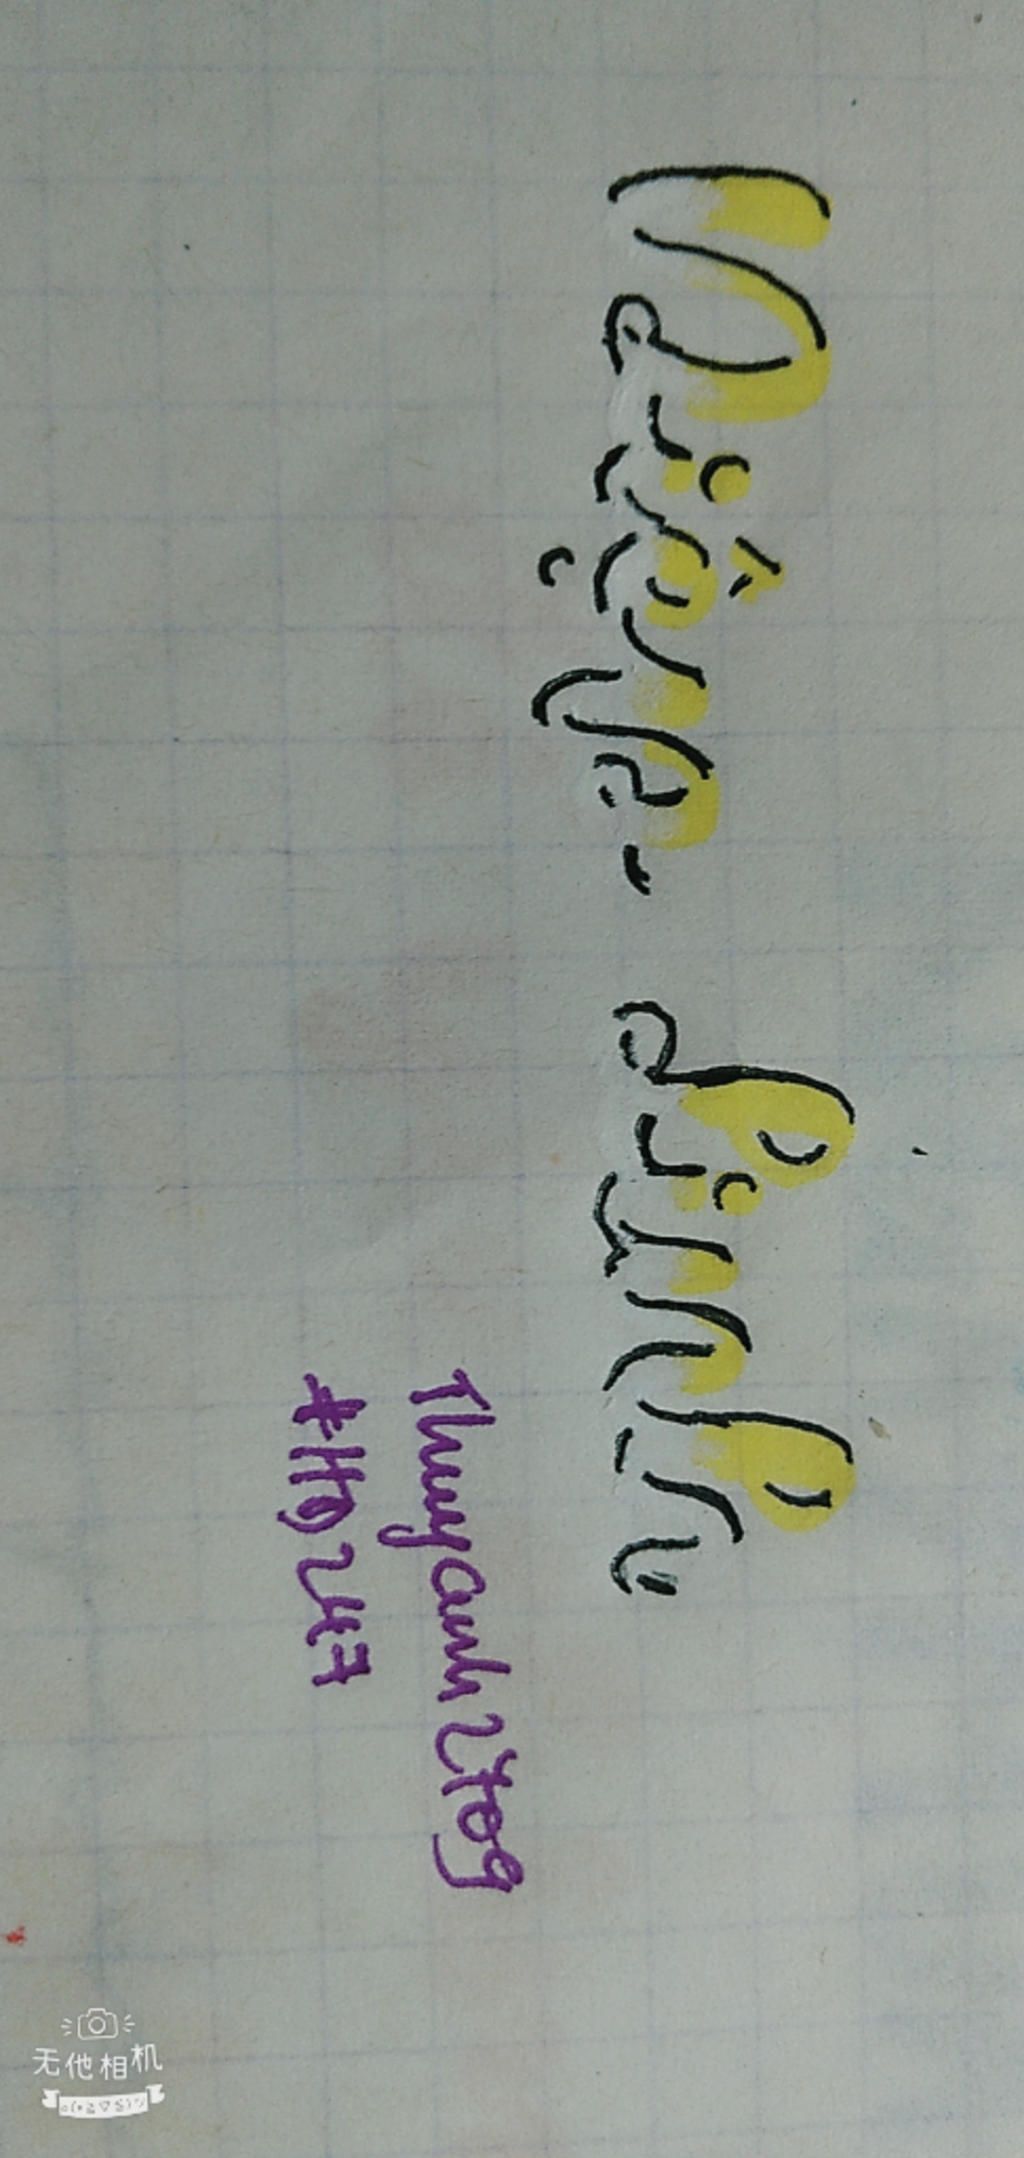 Diệp linh
Thuyanh2709
#HĐ247
无他相机